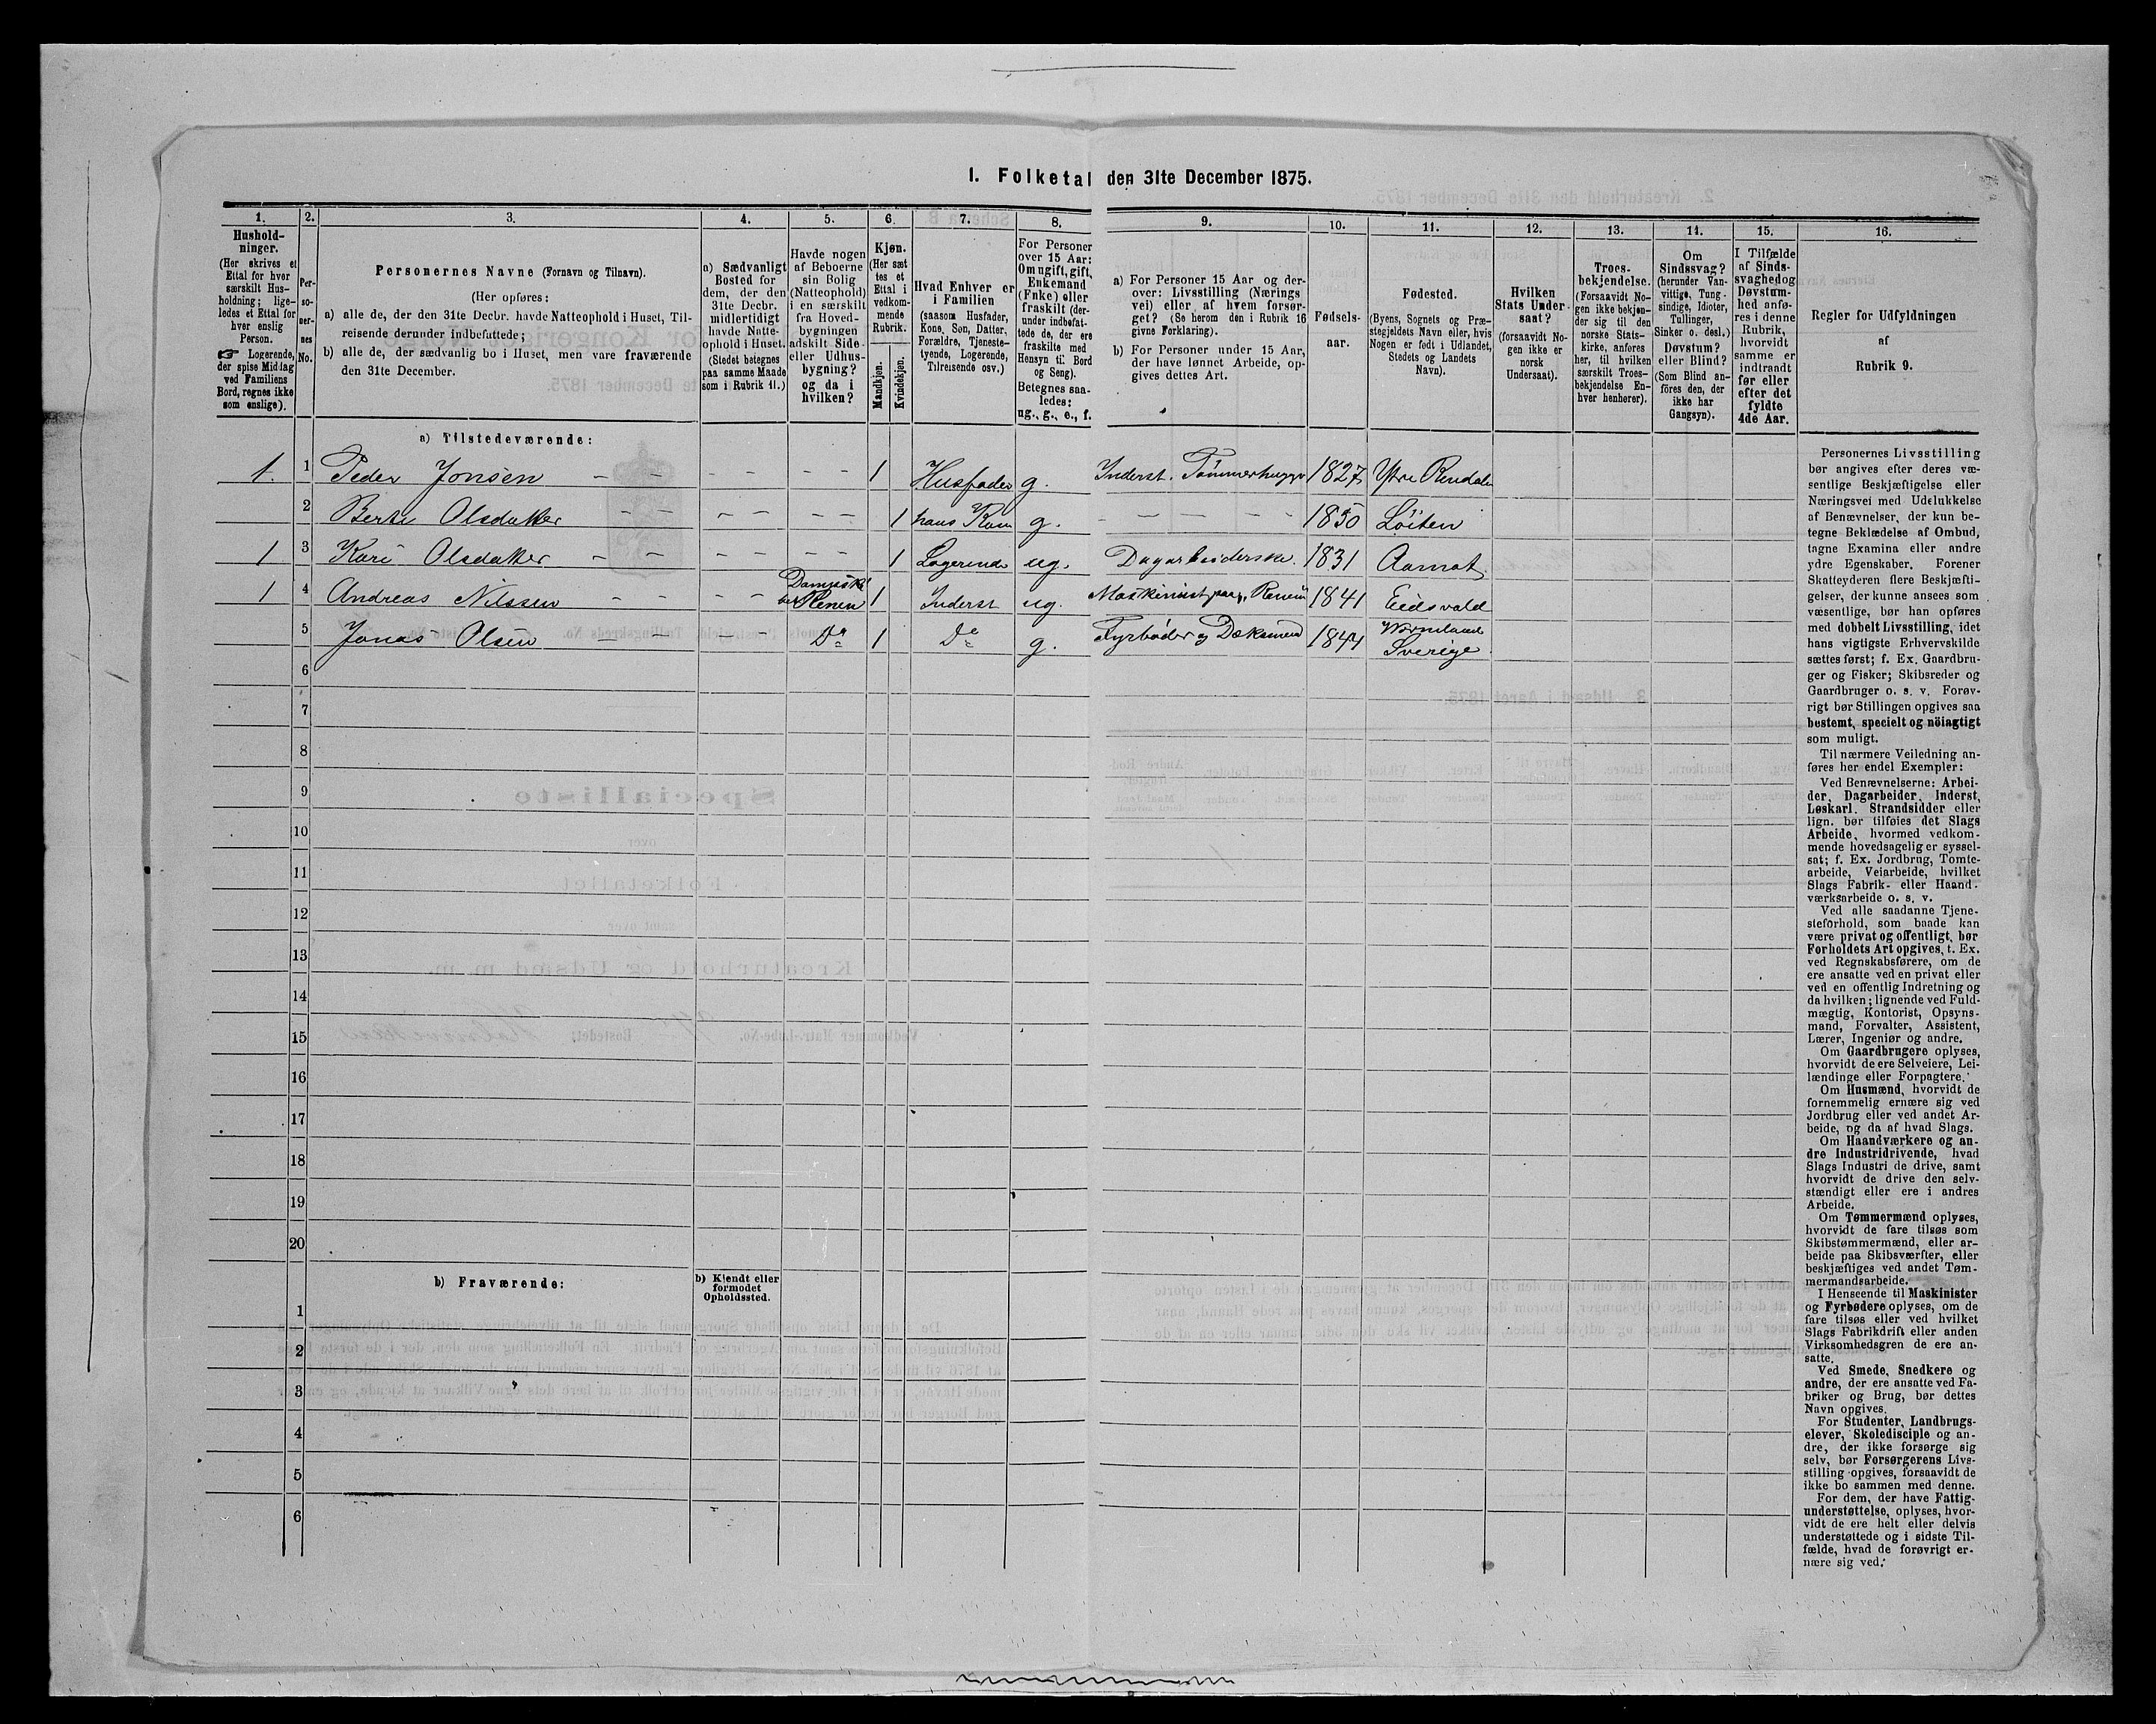 I. Folketal den 31te December 1875.
1. 2. 3. 4. 5. 6. 7. 8. 9. 10. 11. 12. 13. 14. 15. 16.
Hushold-
ninger.
(Her skrives et
Ettal for hver
særskilt Hus-
holdning; lige-
ledes et Ettal for
hver enslig
Person.
☞ Logerende,
der spise Middag
ved Familiens
Bord, regnes ikke
som enslige).
Per-
so-
ner-
nes
No.
Personernes Navne (Fornavn og Tilnavn).
(Her opføres:
a) alle de, der den 31te Decbr. havde Natteophold i Huset, Til-
reisende derunder indbefattede;
b) alle de, der sædvanlig bo i Huset, men vare fraværende
den 31te December.
a) Sædvanligt
Bosted for
dem, der den
31te Decbr.
midlertidigt
havde Natte-
ophold i Huset.
(Stedet betegnes
paa samme Maade
som i Rubrik 11.)
Havde nogen
af Beboerne
sin Bolig
(Natteophold)
i en særskilt
fra Hoved-
bygningen
adskilt Side-
eller Udhus-
bygning?
og da i
hvilken?
Kjøn.
(Her sæt-
tes et
Ettal i
vedkom-
mende
Rubrik.
Mandkjøn.
Kvindekjøn.
Hvad Enhver er
i Familien
(saasom Husfader,
Kone, Søn, Datter,
Forældre, Tjeneste-
tyende, Logerende,
Tilreisende osv.)
For Personer
over 15 Aar:
Om ugift, gift,
Enkemand
(Enke) eller
fraskilt (der-
under indbefat-
tede de, der ere
fraskilte med
Hensyn til Bord
og Seng).
Betegnes saa-
ledes:
ug., g., e., f.
a) For Personer 15 Aar og der-
over: Livsstilling (Nærings
vei) eller af hvem forsør-
get? (Se herom den i Rubrik 16
givne Forklaring).
b) For Personer under 15 Aar,
der have lønnet Arbeide, op-
gives dettes Art.
Fødsels-
aar.
Fødested.
(Byens, Sognets og Præ-
stegjeldets Navn eller, hvis
Nogen er født i Udlandet,
Stedets og Landets
Navn).
Hvilken
Stats Under-
saat?
(forsaavidt No-
gen ikke er
norsk
Undersaat).
Troes-
bekjendelse.
(Forsaavidt No-
gen ikke bekjen-
der sig til den
norske Stats-
kirke, anføres
her, til hvilken
særskilt Troes-
bekjendelse En-
hver henhører).
Om
Sindssvag?
(herunder Van-
vittige, Tung-
sindige, Idioter,
Tullinger,
Sinker o. desl.)
Døvstum?
eller Blind?
(Som Blind an-
føres den, der
ikke har
Gangsyn).
I Tilfælde
af Sinds-
svaghed og
Døvstum-
hed anfø-
res i denne
Rubrik,
hvorvidt
samme er
indtraadt
før eller
efter det
fyldte
4de Aar.
Regler for Udfyldningen
af
Rubrik 9.
a) Tilstedeværende:
1. 1 Peder Jonsen – – – – – – – 1 Husfader g. Inderst. Tømmerhugger 1827 Ytre Rendalen
2 Berte Olsdatter – – – – – – 1 hans Kone g. – – – – – 1850 Löiten
1 3 Kari Olsdatter – – – – – – – 1 Logerende ug. Dagarbeiderske. 1831 Aamot.
1 4 Andreas Nilssen – – – – Renen 1 Inderst ug. Maskinist paa 1841 Eidsvold
5 Jonas Olsen – – – – Do 1 Do g. Fyrbøder og Dæksmand 1844 Wermland
Sverige
6
7
8
9
10
11
12
13
14
15
16
17
18
19
20
b) Fraværende:
b) Kjendt eller
formodet
Opholdssted.
1
2
3
4
5
6
Personernes Livsstilling
bør angives efter deres væ-
sentlige Beskjæftigelse eller
Næringsvei med Udelukkelse
af Benævnelser, der kun be-
tegne Beklædelse af Ombud,
tagne Examina eller andre
ydre Egenskaber. Forener
Skatteyderen flere Beskjæfti-
gelser, der kunne ansees som
væsentlige, bør han opføres
med dobbelt Livsstilling, idet
hans vigtigste Erhvervskilde
sættes først; f. Ex. Gaardbru-
ger og Fisker; Skibsreder og
Gaardbruger o. s. v. Forøv-
rigt bør Stillingen opgives saa
bestemt, specielt og nöiagtigt
som muligt.
Til nærmere Veiledning an-
føres her endel Exempler:
Ved Benævnelserne: Arbei-
der, Dagarbeider, Inderst,
Løskarl, Strandsidder eller
lign. bør tilføies det Slags
Arbeide, hvormed vedkom-
mende hovedsagelig er syssel-
sat; f. Ex. Jordbrug, Tomte-
arbeide, Veiarbeide, hvilket
Slags Fabrik- eller Haand-
værksarbeide o. s. v.
Ved alle saadanne Tjene-
steforhold, som baade kan
være privat og offentligt, bør
Forholdets Art opgives, t. Ex.
ved Regnskabsførere, om de
ere ansatte ved en privat eller
ved en offentlig Indretning og
da hvilken; lignende ved Fuld-
mægtig, Kontorist, Opsyns-
mand, Forvalter, Assistent,
Lærer, Ingeniør og andre.
Om Gaardbrugere oplyses,
hvorvidt de ere Selveiere, Lei-
lændinge eller Forpagtere.
Om Husmænd, hvorvidt de
fornemmelig ernære sig ved
Jordbrug eller ved andet Ar-
beide, og da af hvad Slags.
Om Haandværkere og an-
dre Industridrivende, hvad
Slags Industri de drive, samt
hvorvidt de drive den selv-
stændigt eller ere i andres
Arbeide.
Om Tømmermænd oplyses,
hvorvidt de fare tilsøs som
Skibstømmermænd, eller ar-
beide paa Skibsværfter, eller
beskjæftiges ved andet Tøm-
mermandsarbeide.
I Henseende til Maskinister
og Fyrbødere oplyses, om de
fare tilsøs eller ved hvilket
Slags Fabrikdrift eller anden
Virksomhedsgren de ere an-
satte.
Ved Smede, Snedkere og
andre, der ere ansatte ved Fa-
briker og Brug, bør dettes
Navn opgives.
For Studenter, Landbrugs-
elever, Skoledisciple og an-
dre, der ikke forsørge sig
selv, bør Forsørgerens Livs-
stilling opgives, forsaavidt de
ikke bo sammen med denne.
For dem, der have Fattig-
understøttelse, oplyses, hvor-
vidt de ere helt eller delvis
understøttede og i sidste Til-
fælde, hvad de forøvrigt er-
nære sig ved.